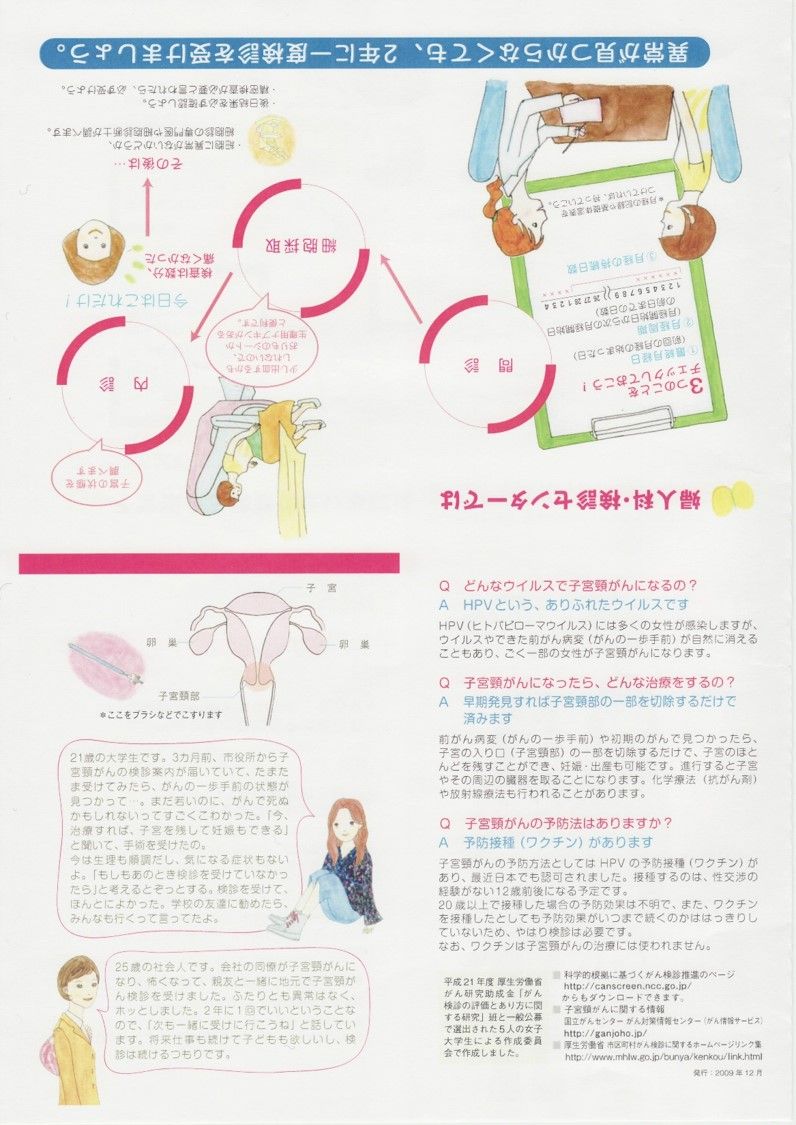 婦人科・検診センターでは
3つのことを
チェックしておこう!
①最終月経日
(前回の月経の始まった日)
②月経周期
(月経開始日から次の月経開始日
の前日までの日数)
1 2 3 4 5 6 7 8 9 26 27 28 1 2 3 4
③月経の持続日数
*月経の記録や基礎体温表を
つけていれば、持っていこう。
問診
細胞採取
少し出血するかも
しれないので、
おりものシートか
生理用ナプキンがある
と便利です。
内診
子宮の状態を
調べます
今日はこれだけ!
検査は数分、
痛くなかった
その後は…
・細胞に異常がないかどうか、
細胞診の専門医や細胞検査士が調べます。
・後日結果を必ず確認しよう。
・精密検査が必要と言われたら、必ず受けよう。
異常が見つからなくても、2年に一度検診を受けましょう。
子宮
卵巣
卵巣
子宮頸部
*ここをブラシなどでこすります
21歳の大学生です。3カ月前、市役所から子
宮頸がんの検診案内が届いていて、たまた
ま受けてみたら、がんの一歩手前の状態が
見つかって…。まだ若いのに、がんで死ぬ
かもしれないってすごくこわかった。「今、
治療すれば、子宮を残して妊娠もできる」
と聞いて、手術を受けたの。
今は生理も順調だし、気になる症状もない
よ。「もしもあのとき検診を受けていなかっ
たら」と考えるとぞっとする。検診を受けて、
ほんとによかった。学校の友達に勧めたら、
みんなも行くって言ってたよ。
25歳の社会人です。会社の同僚が子宮頸がんに
なり、怖くなって、親友と一緒に地元で子宮頸が
ん検診を受けました。ふたりとも異常はなく、
ホッとしました。2年に1回でいいということな
ので、「次も一緒に受けに行こうね」と話してい
ます。将来仕事も続けて子どもも欲しいし、検
診は続けるつもりです。
Q どんなウイルスで子宮頸がんになるの?
A HPVという、ありふれたウイルスです
HPV(ヒトパピローマウイルス)には多くの女性が感染しますが、
ウイルスやできた前がん病変(がんの一歩手前)が自然に消える
こともあり、ごく一部の女性が子宮頸がんになります。
Q 子宮頸がんになったら、どんな治療をするの?
A 早期発見すれば子宮頸部の一部を切除するだけで
済みます
前がん病変(がんの一歩手前)や初期のがんで見つかったら、
子宮の入り口(子宮頸部)の一部を切除するだけで、子宮のほと
んどを残すことができ、妊娠・出産も可能です。進行すると子宮
やその周辺の臓器を取ることになります。化学療法(抗がん剤)
や放射線療法も行われることがあります。
Q 子宮頸がんの予防法はありますか?
A 予防接種(ワクチン)があります
子宮頸がんの予防方法としては HPV の予防接種(ワクチン)が
あり、最近日本でも認可されました。接種するのは、性交渉の
経験がない12歳前後になる予定です。
20 歳以上で接種した場合の予防効果は不明で、また、ワクチン
を接種したとしても予防効果がいつまで続くのかははっきりし
ていないため、やはり検診は必要です。
なお、ワクチンは子宮頸がんの治療には使われません。
平成21年度 厚生労働省
がん研究助成金「がん
検診の評価とあり方に関
する研究」班と一般公募
で選出された5人の女子
大学生による作成委員
会で作成しました。
科学的根拠に基づくがん検診推進のページ
http://canscreen.ncc.go.jp/
からもダウンロードできます。
子宮頸がんに関する情報
国立がんセンター がん対策情報センター(がん情報サービス)
http://ganjoho.jp/
厚生労働省 市区町村がん検診に関するホームページリンク集
http://www.mhlw.go.jp/bunya/kenkou/link.html
発行:2009年12月